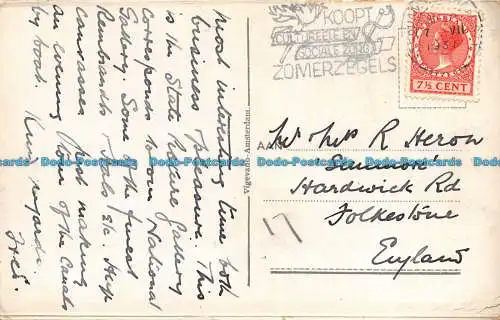 most interesting time both
business & pleasure. This
is the State Picture Gallery
corresponds to our National
Gallery. Some of the finest
Rembrandts & Hals etc. Huge
canvasses. Just making
an evening tour of the Canals
by boat. Kind regards
Fred.
Vigevano-Amsterdam
KOOPT
CULTUREELE EN
SOCIALE ZORG
ZOMERZEGELS
VII
193
7½ CENT
AAN
Mr & Mrs R Heron
Hardwick Rd
Folkestone
England
17
Postcards Postcards Postcards Postcards Postcards